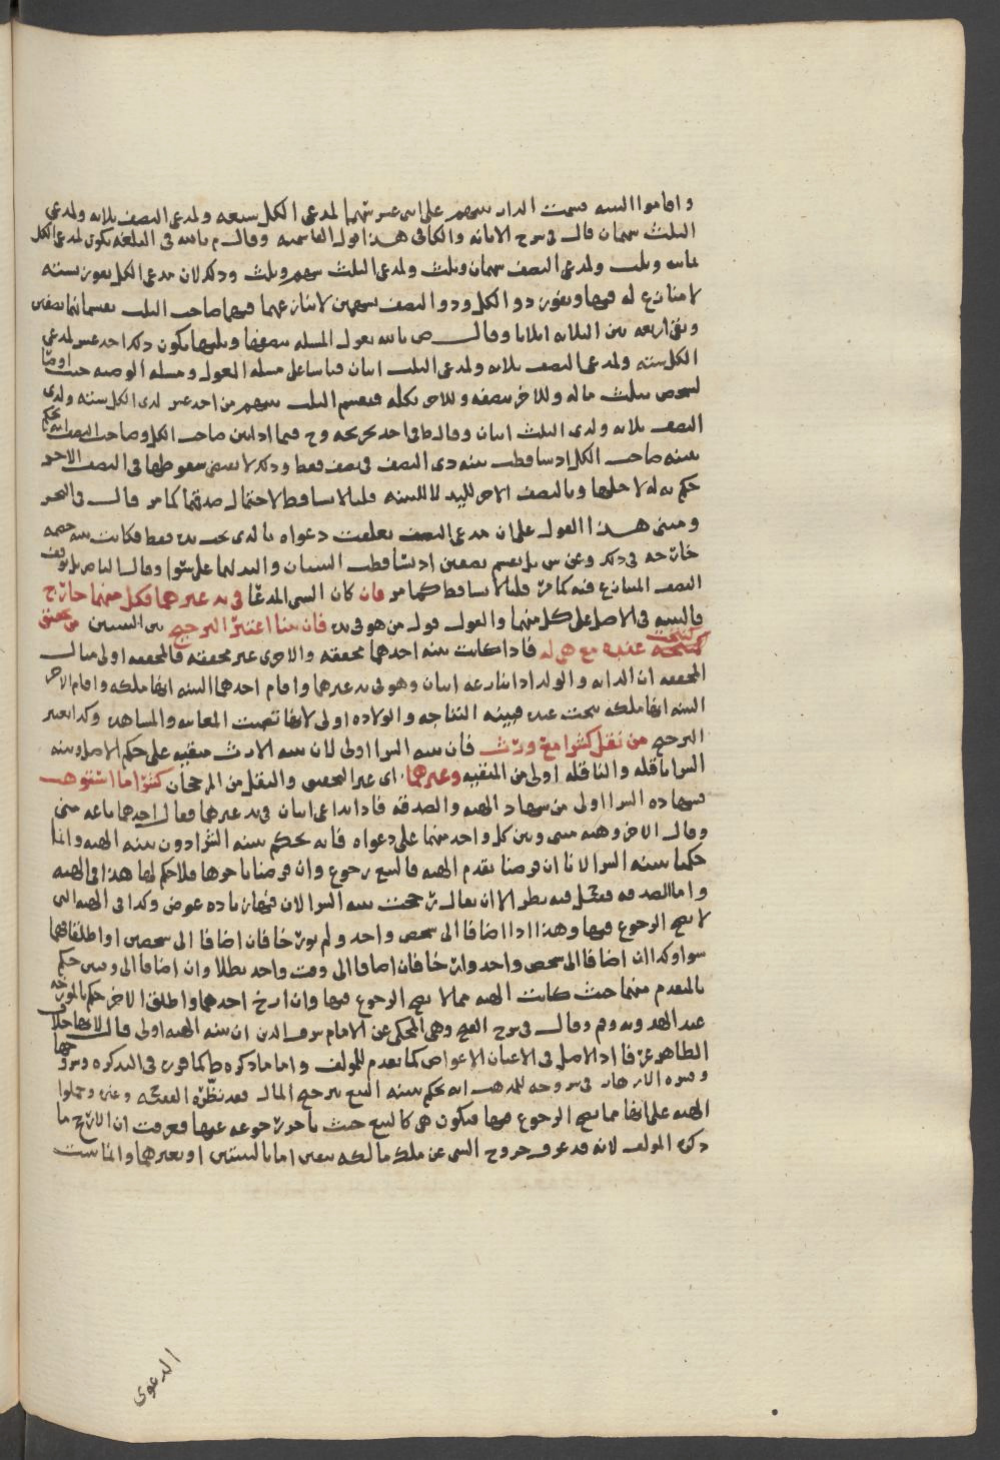 واقاموا البينه قسمت الدار بينهم على اثنى عشر سهما لمدعى الكل سبعه ولمدعى النصف ثلاثه ولمدعى
الثلث سهمان قال فى شرح الابانه والكافى هذا قول القاسميه وقال م بالله فى البلغه يكون لمدعى الكل
ثمانيه وثلث ولمدعى النصف سهمان وثلث ولمدعى الثلث سهم وثلث وذلك لان مدعى الكل يفوز بسته
لا منازع له فيها ويفوز ذو الكل وذو النصف بسهمين لا ينازعهما فيهما صاحب الثلث يقسمانها نصفين
وبقى اربعه بين الثلاثه اثلاثا وقال ص بالله يعول المسله بنصفها وثلثها يكون ذلك احد عشر لمدعى
الكل سته ولمدعى النصف ثلاثه ولمدعى الثلث اثنان قياسا على مسله العول ومسله الوصيه حيث اوصا
لشخص بثلث ماله وللاخر بنصفه وللاخر بكله فيقسم الثلث بينهم من احد عشر لذى الكل سته ولذى
النصف ثلاثه ولذى الثلث اثنان وقال ط فى احد تخريجيه وح فيما اذا بين صاحب الكل وصاحب النصف انه يحكم
ببينه صاحب الكل اذ ساقطت بينه ذى النصف فى نصف فقط وذلك لا يقتضى سقوطها فى النصف الاخر
حكم به له لاجلها وبالنصف الاخر لليد لا للبينه قلنا لا تساقط لاحتمال صدقهما كما مر قال فى البحر
ومبنى هذا القول على ان مدعى النصف تعلقت دعواه بالذى تحت يده فقط فكانت بينه خصمه
خارجه فى ذلك وعن ش بل يقسم نصفين اذ تساقطت البينتان واليد لهما على سوا وقال الناصر بل يوقف
النصف المتنازع فيه كما مر قلنا لا تساقط كما مر فان كان الشى المدعا فى يد غيرهما فكل منهما خارج
فالبينه فى الاصل على كل منهما والقول قول من هو فى يده فان بينا اعتبر الترجيح بين البينتين من تحقيق
عنده مع هى له فاذا كانت بينه احدهما محققه والاخرى غير محققه فالمحققه اولى مثال
المحققه ان الدابه والولد اذا تنازعه اثنان وهو فى يد غيرهما واقام احدهما البينه انها ملكه واقام الاخر
البينه انها ملكه نتجت عنده فبينه النتاجه والولاده اولى لانها تضمنت المعاينه والمشاهده وكذا يعتبر
الترجيح من نقل كشرا مع ورث فان بينه الشرا اولى لان بينه الارث مبقيه على حكم الاصل وبينه
الشرا ناقله والناقله اولى من المبقيه وغيرهما اى غير التحقيق والنقل من المرجحات كشرا ما استوهب
فشهاده الشرا اولى من شهاد الهبه والصدقه فاذا تداعى اثنان فى يد غيرهما فقال احدهما باعه منى
وقال الاخر وهبه منى وبين كل واحد منهما على دعواه فانه يحكم ببينه الشرا دون بينه الهبه وانما
حكمنا ببينه الشرا لانا ان فرضنا تقدم الهبه فالبيع رجوع وان فرضنا تاخرها فلا حكم لها هذا فى الهبه
واما الصدقه فيحتمل فيه نظر الا ان يقال رجحت بينه الشرا لان فيها زياده عوض وكذا فى الهبه التى
لا يصح الرجوع فيها وهذا اذا اضافا الى شخص واحد ولم يورخا فان اضافا الى شخصين او اطلقا فهما
سوا وكذا ان اضافا الى شخص واحد وارخا فان اضافا الى وقت واحد بطلا وان اضافا الى وقتين حكم
بالمتقدم منهما حيث كانت الهبه مما لا يصح الرجوع فيها وان ارخ احدهما واطلق الاخر حكم بالمورخه
عند الهدويه وم وقال فى شرح الفتح وهى المحكى عن الامام شرف الدين ان بينه الهبه اولى قال لانها خلاف
الظاهر فاذ الاصل فى الاعيان الاعواض كما تقدم للمولف واما ما ذكره ط كما قرر فى التذكره وشروحها
وقبره الازهار فى شروحه للمذهب انه يحكم ببينه البيع بترجيح المال فقد نظره الفقيه وغيره وحملوا
الهبه على انها مما يصح الرجوع فيها فيكون هى كالبيع حيث تاخر رجوعه عنها فعرفت ان الارجح ما
ذكره المولف لانه قد عرف خروج الشى عن ملك مالكه بيقين اما بالبينتين او بغيرهما والتاست
الدعوى